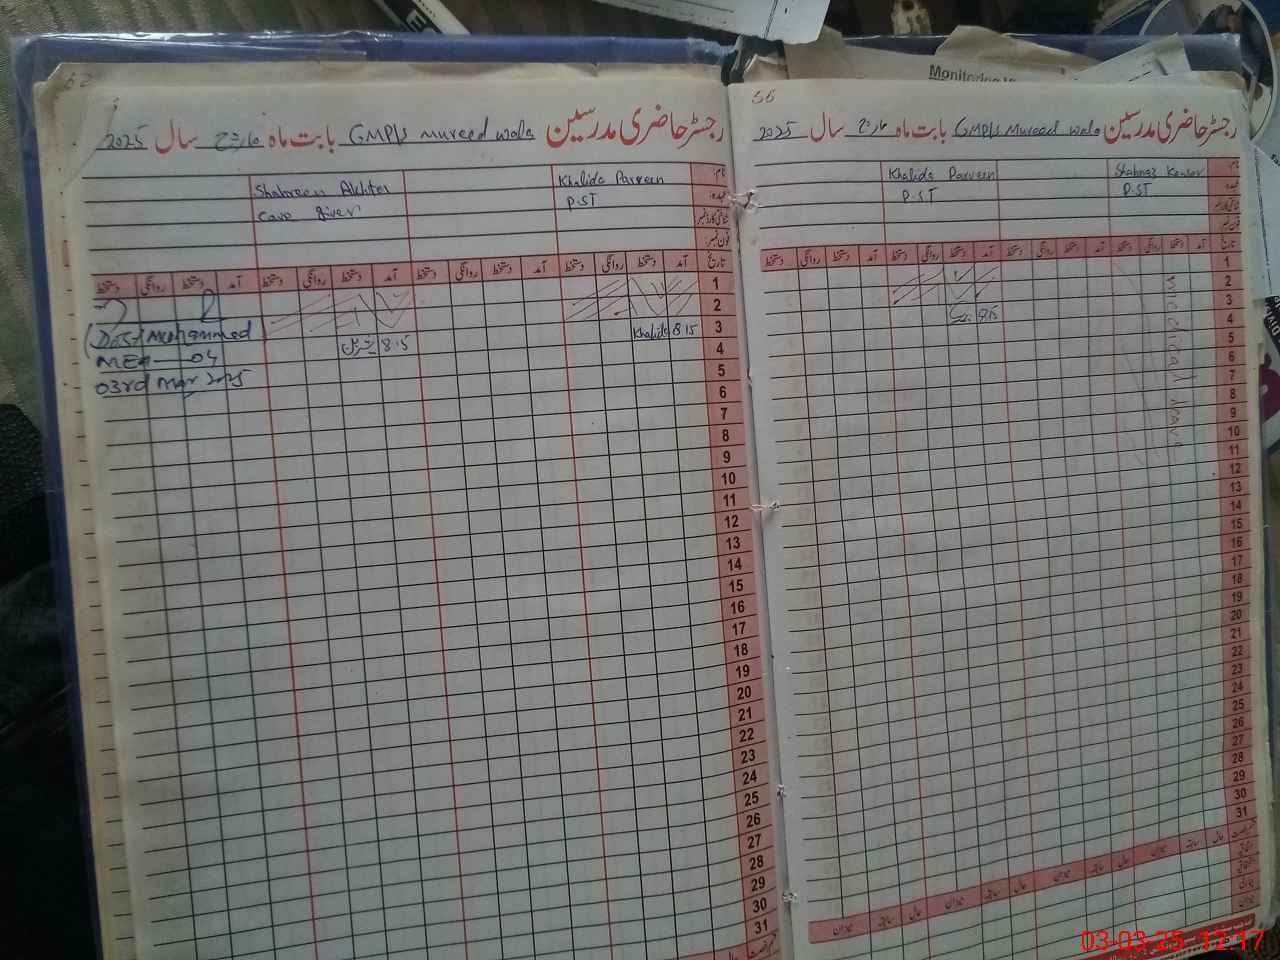 Monitoring
55
رجسٹر حاضری مدرسین GMP/S Mureed wala بابت ماہ مارچ سال 2025
نام: Shahnaz Kausar Khalida Parveen
عہدہ: P.ST P.ST
شناختی کارڈ نمبر
فون نمبر:
تاریخ آمد دستخط روانگی دستخط آمد دستخط روانگی دستخط آمد دستخط روانگی دستخط
1
2
3
4
5
6
7
8
9
10
11
12
13
14
15
16
17
18
19
20
21
22
23
24
25
26
27
28
29
30
31
رجسٹر حاضری مدرسین GMP/S mureed wala بابت ماہ مارچ سال 2025
نام: Khalida Parveen Shahreen Akhtar
عہدہ: P.ST Care giver
شناختی کارڈ نمبر
فون نمبر:
تاریخ آمد دستخط روانگی دستخط آمد دستخط روانگی دستخط آمد دستخط روانگی دستخط
1
2
3 8:15 Khalida 8:15
4
5
6
7
8
9
10
11
12
13
14
15
16
17
18
19
20
21
22
23
24
25
26
27
28
29
30
31
Dost Muhammad
MEA-04
03rd Mar, 2025
03-03-25 12:17